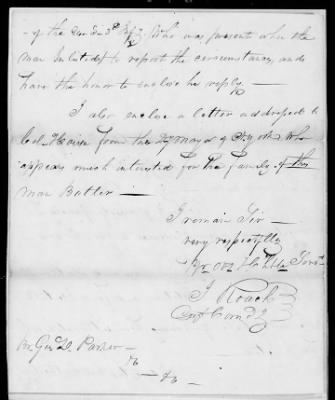 of the 2nd & 3d who was present when the
man Enlisted to report the circumstances, and
have the honor to enclose his reply.
I also enclose a letter addressed to
Col. from the Mayor of who
appears much interested for the family of this
man Butler —
I remain Sir —
very respectfully
Yr. Obt. Servt.
J Roach
Capt Comdg
Br Genl D. Parker —
&c
— &c —